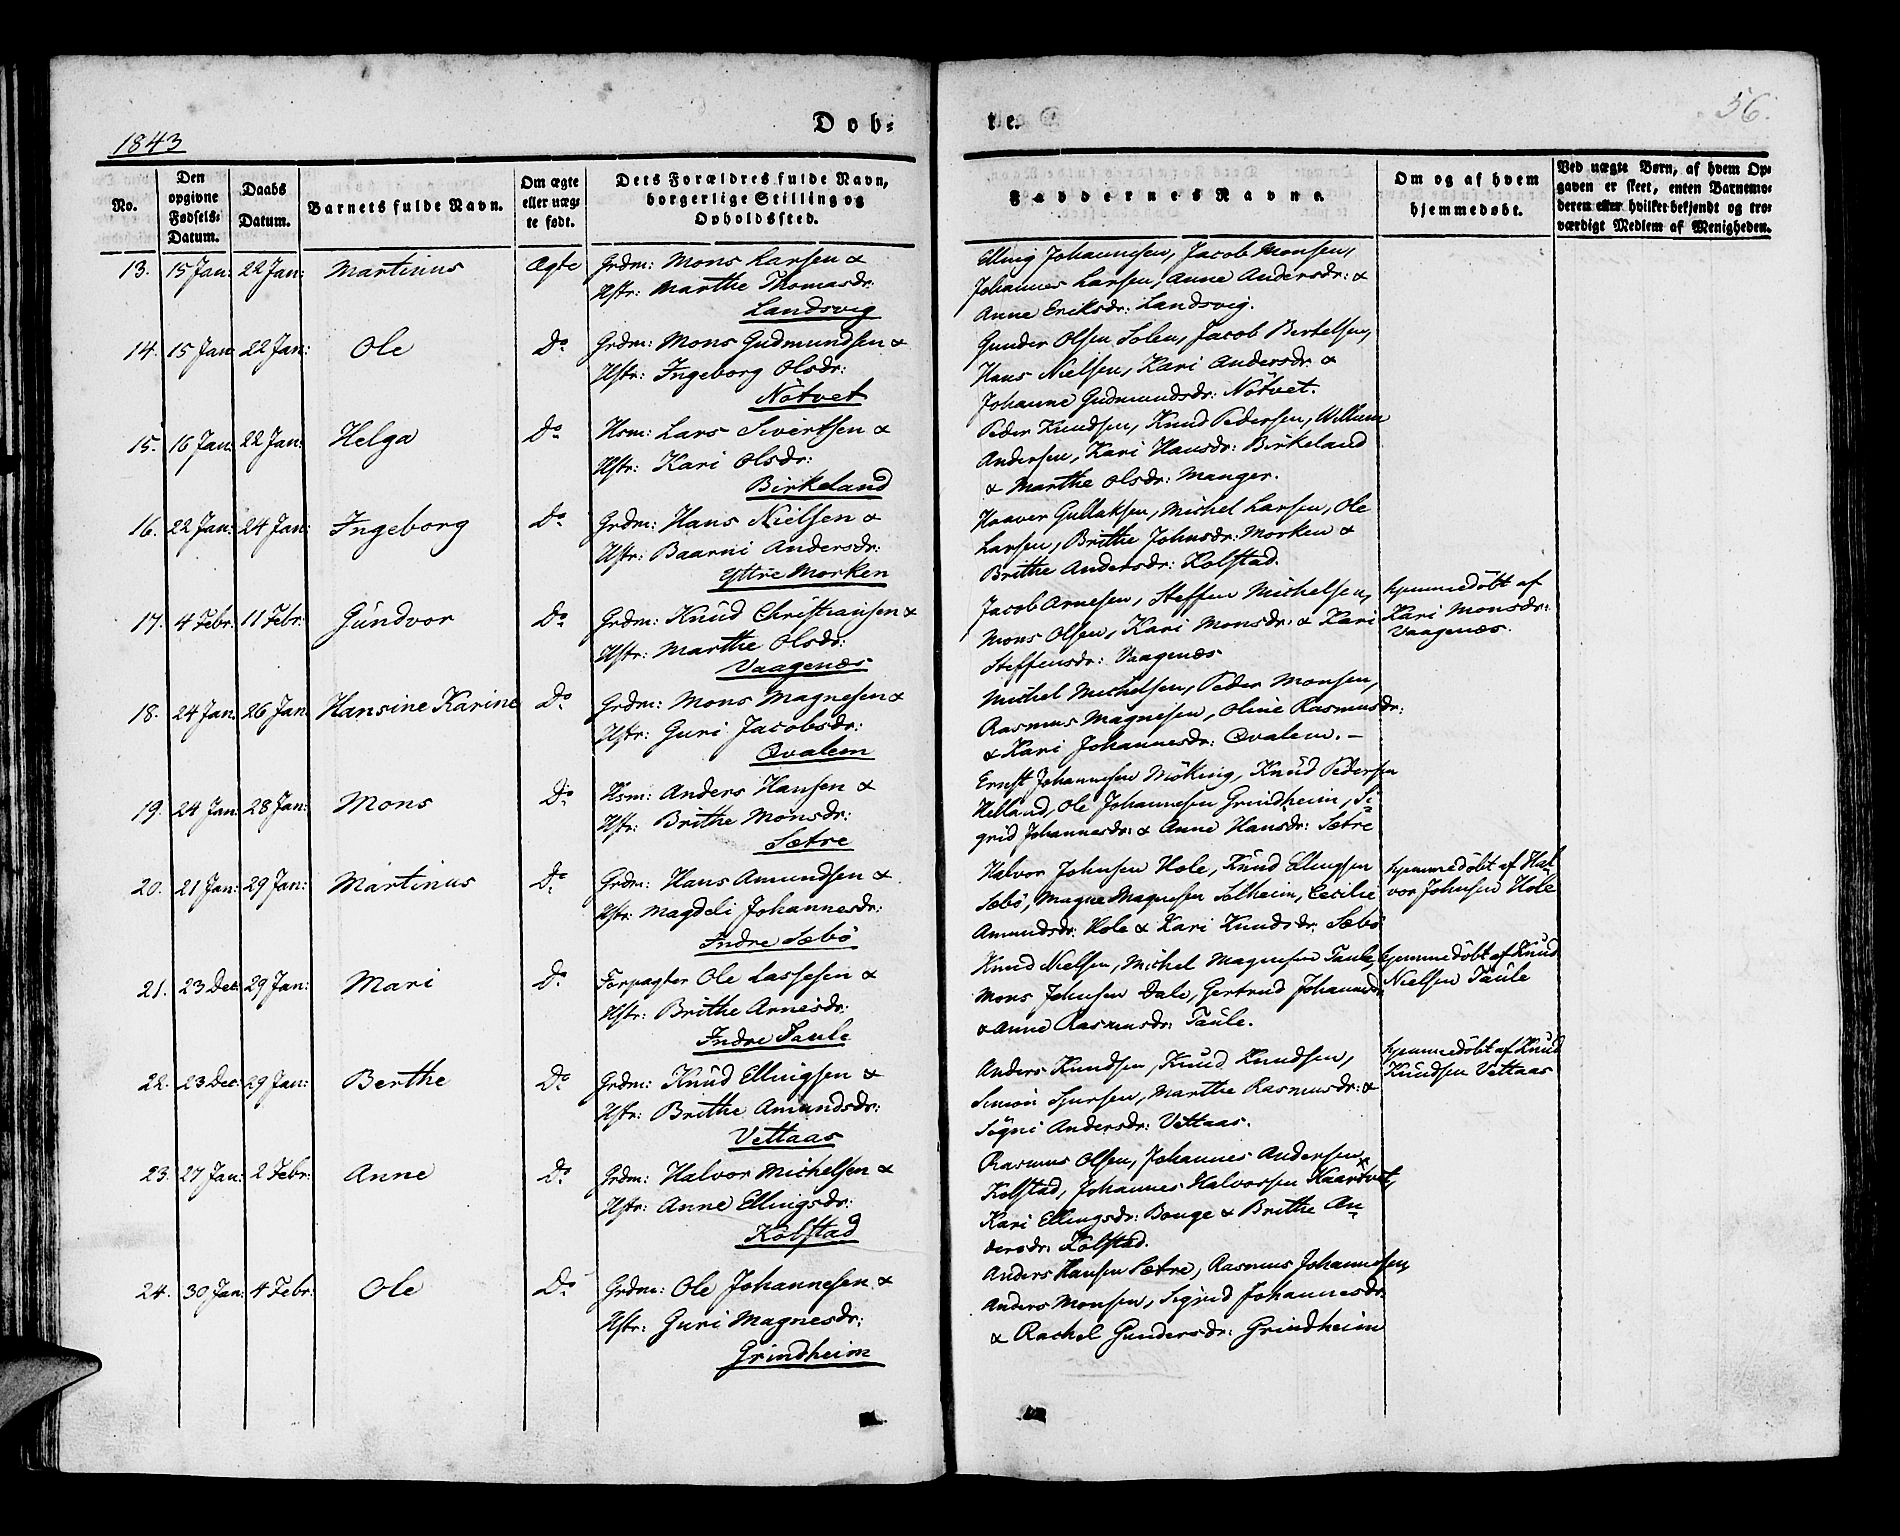 1843
Døb-
te.
56.
No.
Den opgivne Fødsels-Datum.
Daabs Datum.
Barnets fulde Navn.
Om ægte eller uægte født.
Dets Forældres fulde Navn, borgerlige Stilling og Opholdssted.
Faddernes Navne.
Om og af hvem hjemmedøbt.
Ved uægte Børn, af hvem Opgaven er skeet, enten Barnemoderen eller hvilket bekjendt og troværdigt Medlem af Menigheden.
13. 15 Jan: 22 Jan: Martinus Ægte Grdm: Mons Larsen &
Hstr: Marthe Thomasdr:
Landsvig
Elling Johannesen, Jacob Monsen,
Johannes Larsen, Anne Andersdr: &
Anne Eriksdr: Landsvig.
14. 15 Jan: 22 Jan: Ole Do Grdm: Mons Gudmundsen &
Hstr: Ingeborg Olsdr:
Nötvet
Gunder Olsen Solem, Jacob Bertelsen,
Hans Nielsen, Kari Andersdr: &
Johanne Gudmundsdr: Nötvet.
15. 16 Jan: 22 Jan: Helga Do Hsm: Lars Sivertsen &
Hstr: Kari Olsdr:
Birkeland
Peder Knudsen, Knud Pedersen, Willum
Andersen, Kari Hansdr: Birkeland
& Marthe Olsdr: Manger.
16. 22 Jan: 24 Jan: Ingeborg Do Grdm: Hans Nielsen &
Hstr: Baarni Andersdr:
Yttre Morken
Haaver Gullaksen, Michel Larsen, Ole
Larsen, Brithe Johnsdr: Morken &
Brithe Andersdr: Kolstad.
17. 4 Febr: 11 Febr: Gúndvor Do Grdm: Knúd Christiansen &
Hstr: Marthe Olsdr:
Vaagenæs
Jacob Arnesen, Steffen Michelsen,
Mons Olsen, Kari Monsdr: & Kari
Steffensdr: Vaagenæs
hjemmedöbt af
Kari Monsdr:
Vaagenæs.
18. 24 Jan. 26 Jan Hansine Karine Do Grdm: Mons Magnesen &
Hstr: Guri Jacobsdr:
Qvalem
Michel Michelsen, Peder Monsen,
Rasmus Magnesen, Oline Rasmusdr:
& Kari Johannesdr: Qvalem. –
19. 24 Jan 28 Jan: Mons Do Hsm: Anders Hansen &
Hstr: Brithe Monsdr:
Sætre
Ernst Johannesen Möking, Knúd Pedersen
Helland, Ole Johannesen Grindheim, Si-
grid Johannesdr: & Anne Hansdr: Sætre
20. 21 Jan: 29 Jan: Martinus Do Grdm: Hans Amundsen &
Hstr: Magdeli Johannesdr:
Indre Sæbö
Halvor Johnsen Hole, Knúd Ellingsen
Sæbö, Magne Magnesen Solheim, Cecilie
Amundsdr: Hole & Kari Knudsdr: Sæbö
hjemmedöbt af Hal-
vor Johnsen Hole
21. 23 Dec: 29 Jan: Mari Do Forpagter Ole Lassesen &
Hstr: Brithe Arnesdr:
Indre Taule
Knud Nielsen, Michel Magnesen Taule,
Mons Johnsen Dale, Gertrud Johannesdr:
& Anne Rasmusdr: Taúle.
hjemmedöbt af Knúd
Nielsen Taúle
22. 23 Dec: 29 Jan: Berthe Do Grdm: Knúd Ellingsen &
Hstr: Brithe Amundsdr:
Vettaas
Anders Knudsen, Knúd Knudsen,
Simon Sjursen, Marthe Rasmusdr: &
Sögni Andersdr: Vettaas.
hjemmedöbt af Knúd
Knúdsen Vettaas
23. 27 Jan: 2 Febr: Anne Do Grdm: Halvor Michelsen &
Hstr: Anne Ellingsdr:
Kolstad
Rasmus Olsen, Johannes Andersen
Kolstad, Johannes Halvorsen Kaardtvet,
Kari Ellingsdr: Bouge & Brithe An-
dersdr: Kolstad.
24. 30 Jan: 4 Febr: Ole Do Grdm: Ole Johannesen &
Hstr: Guri Magnesdr:
Grindheim
Anders Hansen Sætre, Rasmus Johannesen,
Anders Monsen, Sigrid Johannesdr:
& Rachel Gundersdr: Grindheim